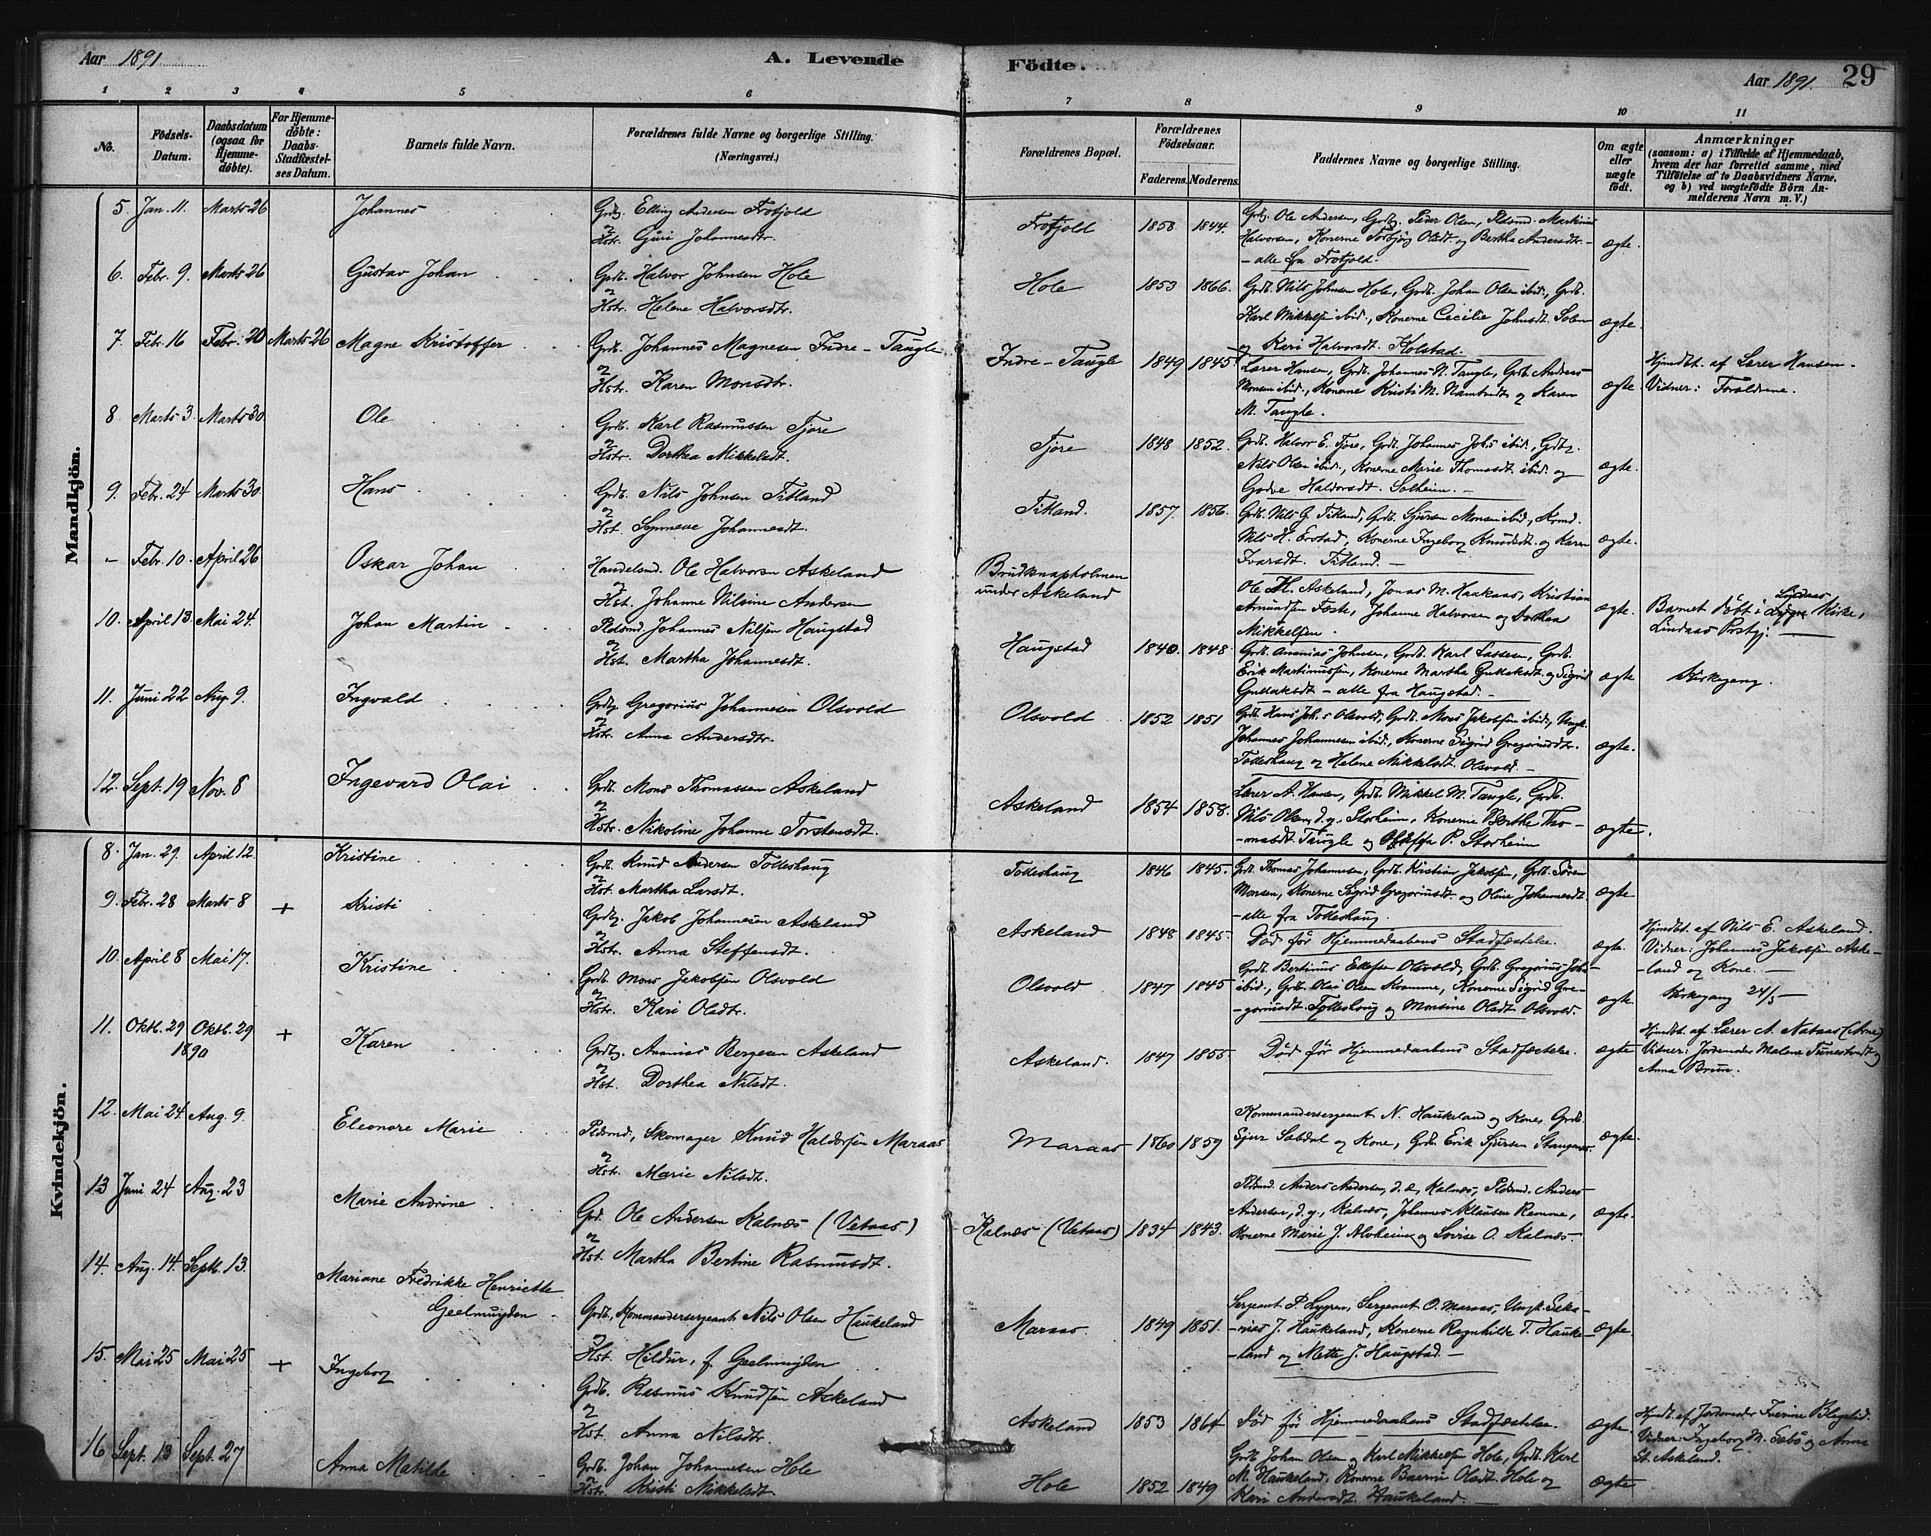 Aar 1891
A. Levende
Födte.
Aar 1891.
29
1 2 3 4 5 6 7 8 9 10 11
No.
Födsels-
Datum.
Daabsdatum
(ogsaa for
Hjemme-
döbte).
For Hjemme-
döbte:
Daabs-
Stadfæstel-
ses Datum.
Barnets fulde Navn.
Forældrenes fulde Navne og borgerlige Stilling.
(Næringsvei.)
Forældrenes Bopæl.
Forældrenes
Födselsaar.
Faderens. Moderens.
Faddernes Navne og borgerlige Stilling.
Om ægte
eller
uægte
födt.
Anmærkninger
(saasom: a) i Tilfælde af Hjemmedaab,
hvem der har forrettet samme, med
Tilföielse af to Daabsvidners Navne,
og b) ved uægtefödte Börn An-
melderens Navn m. V.)
Mandkjön.
5. Jan. 11. Marts 26 Johannes Grdbr. Elling Andersen Frotjold
& Hstr. Guri Johannesdtr.
Frotjold 1858 1844. Grdbr. Ole Andersen, Grdbr. Peder Olsen, Pldsmd. Martinus
Halvorsen, Konerne Torbjørg Olsdt. og Bertha Andersdtr.
- alle fra Frotjold. ægte.
6. Febr. 9. Marts 26 Gustav Johan Grdb. Halvor Johnsen Hole
& Hstr. Helene Halvorsdtr.
Hole 1853 1866. Grdb. Nils Johnsen Hole, Grdb. Johan Olsen ibid., Grdb.
Karl Mikkelsen ibid., Konerne Cecilie Johnsdt. Solem
og Kari Halvorsdt. Kolstad. ægte.
7. Febr. 16 Febr. 20 Marts 26 Magne Kristoffer Grdb. Johannes Magnesen Indre-Taugle
& Hstr. Karen Monsdtr.
Indre-Taugle 1849 1845. Lærer Hansen, Grdb. Johannes N. Taugle, Grdb. Anders
Monsen ibid., Konerne Kristi M. Namtvedt og Karen
M. Taugle. ægte. Hjmdbt. af Lærer Hansen.
Vidner: Forældrene.
8 Marts 3. Marts 30. Ole Grdb. Karl Rasmussen Tjore
& Hstr. Dorthea Mikkelsdt.
Tjore 1848 1852. Grdb. Halvor E. Tjore, Grdb. Johannes Johs ibid., Grdbr.
Nils Olsen ibid., Konerne Marie Thomasdt. ibid. og
Godve Haldorsdt. Solheim. ægte.
9. Febr. 24 Marts 30 Hans Grdb. Nils Johnsen Titland
& Hst. Synneve Johannesdt.
Titland. 1857. 1856. Grdb. Nils G. Titland, Grdb. Sjursen Monsen ibid.,
Nils H. Erstad, Konerne Ingeborg Knudsdt. og Karen
Ivarsdt. Titland. ægte.
- Febr. 10. April 26 Oskar Johan Handelsmd. Ole Halvorsen Askeland
& Hst. Johanne Nilsine Andersen
Brudknapholmen
under Askeland
Ole H. Askeland, Jonas M. Haakaas, Kristian
Amundsen Feste, Johanne Halvorsen og Dorthea
Mikkelsen. ægte. Barnet døbt i Lindaas Kirke,
Lindaas Prstgj.
10. April 13. Mai 24. Johan Martin Pldsmd. Johannes Nilsen Haugstad
& Hst. Martha Johannesdt.
Haugstad 1840. 1848. Grdb. Ananias Johnsen, Grdb. Karl Lassesen, Grdb.
Erik Martinussen, Konerne Martha Gullaksdt. og Sigrid
Gullaksdt - alle fra Haugstad. ægte Kirkegang.
11. Juni 22 Aug. 9. Ingvald Grdbr. Gregorius Johannesen Olsvold
& Hstr. Anna Andersdtr.
Olsvold 1852 1851 Grdb. Hans Joh.s Olsvold, Grdb. Mons Jakobsen ibid., Ungk.
Johannes Johannesen ibid., Konerne Sigrid Gregoriusdtr.
Totleshaug og Helene Mikkelsdt. Olsvold. ægte.
12. Sept. 19 Nov. 8 Ingevard Olai Grdb. Mons Thomassen Askeland
& Hstr. Nikoline Johanne Torstensdt.
Askeland 1854 1858. Lærer A. Hansen, Grdb. Mikkel M. Taugle, Grdb.
Nils Olsen, d.y. Storheim, Konerne Berthe Tho-
masdt. Taugle og P. Storheim ægte.
Kvindekjön.
8. Jan. 29. April 12. Kristine Grdb. Knud Andersen Totleshaug
& Hst. Martha Larsdt.
Totleshaug 1846 1845. Grdb. Thomas Johannesen, Grdb. Kristian Jakobsen, Grdb. Søren
Monsen, Konerne Sigrid Gregoriusdt. og Oline Johannesdt.
- alle fra Totleshaug. ægte.
9. Febr. 28 Marts 8 + Kristi Grdbr. Jakob Johannesen Askeland
& Hstr. Anna Steffensdt.
Askeland 1848 1845. Død før Hjemmedaabens Stadfæstelse. ægte. Hjmdbt. af Nils E. Askeland.
Vidner: Johannes Jakobsen Aske-
land og Kone.
10. April 8 Mai 17. Kristine Grdb. Mons Jakobsen Olsvold
& Hstr. Kari Olsdtr.
Olsvold 1847 1845 Grdb. Bertinus Ellefsen Olsvold, Grdb. Gregorius Johs
ibid., Grdb. Olai Olsen Kvamme, Konerne Sigrid Gre-
goriusdt. Totleshaug og Monsine Olsdt. Olsvold. ægte Kirkegang 24/5
11. Oktb. 29 1890 Oktb. 29 + Karen Grdbr. Ananias Bergesen Askeland
& Hst. Dorthea Nilsdt.
Askeland. 1847 1855 Død før Hjemmedaabens Stadfæstelse. ægte Hjmdbt. af Lærer A. Nataas (Arne)
Vidner: Jordemoder Malene Tunestvedt og
Anna Brun.
12. Mai 24. Aug. 9. Eleonore Marie Pldsmd, Skomager Knud Haldorsen Maraas
& Hstr. Marie Nilsdt.
Maraas 1860 1859 Kommandersergeant N. Haukeland og Kone, Grdb.
Sjur Sabdal og Kone, Grdb. Erik Sjursen Stangenes. ægte.
13 Juni 24 Aug. 23 Marie Andrine Grd. Ole Andersen Kalnæs (Vetaas)
& Hst. Martha Bertine Rasmusdt.
Kalnæs (Vetaas) 1834 1843. Pldsmd. Anders Andersen, d.e., Kalnæs, Pldsmd. Anders
Andersen, d.y., Kalnæs, Johannes Klausen Remme,
Konerne Marie J. Alvheim og Lovise O. Kalnes. ægte.
14. Aug. 14. Sept. 13. Mariane Fredrikke Henriette
Geelmuyden Grdb., Kommandersergeant Nils Olsen Haukeland
& Hst. Hildur, f. Geelmuyden
Maraas. 1849 1851. Sergeant P. Lygren, Sergeant O. Maraas, Ungk. Seka-
rias J. Haukeland, Konerne Ragnhild T. Hauke-
land og Mette J. Haugstad. ægte
15. Mai 25 Mai 25 + Ingeborg Grdb. Rasmus Knudsen Askeland
& Hst. Anna Nilsdtr.
Askeland 1853 1864 Død før Hjemmedaabens Stadfæstelse. ægte. Hjmdbt. af Jordemoder
Vidner: Ingeborg M. Sæbø og Anna
St. Askeland.
16 Sept. 13 Sept. 27 Anna Matilde Grdb. Johan Johannesen Hole
& Hstr. Kristi Mikkelsdt.
Hole 1852 1849 Grdb. Johan Olsen og Karl Mikkelsen Hole, Grdb. Karl
M. Haukeland, Konerne Olsdt. Hole og
Kari Andersdt. Haukeland. ægte